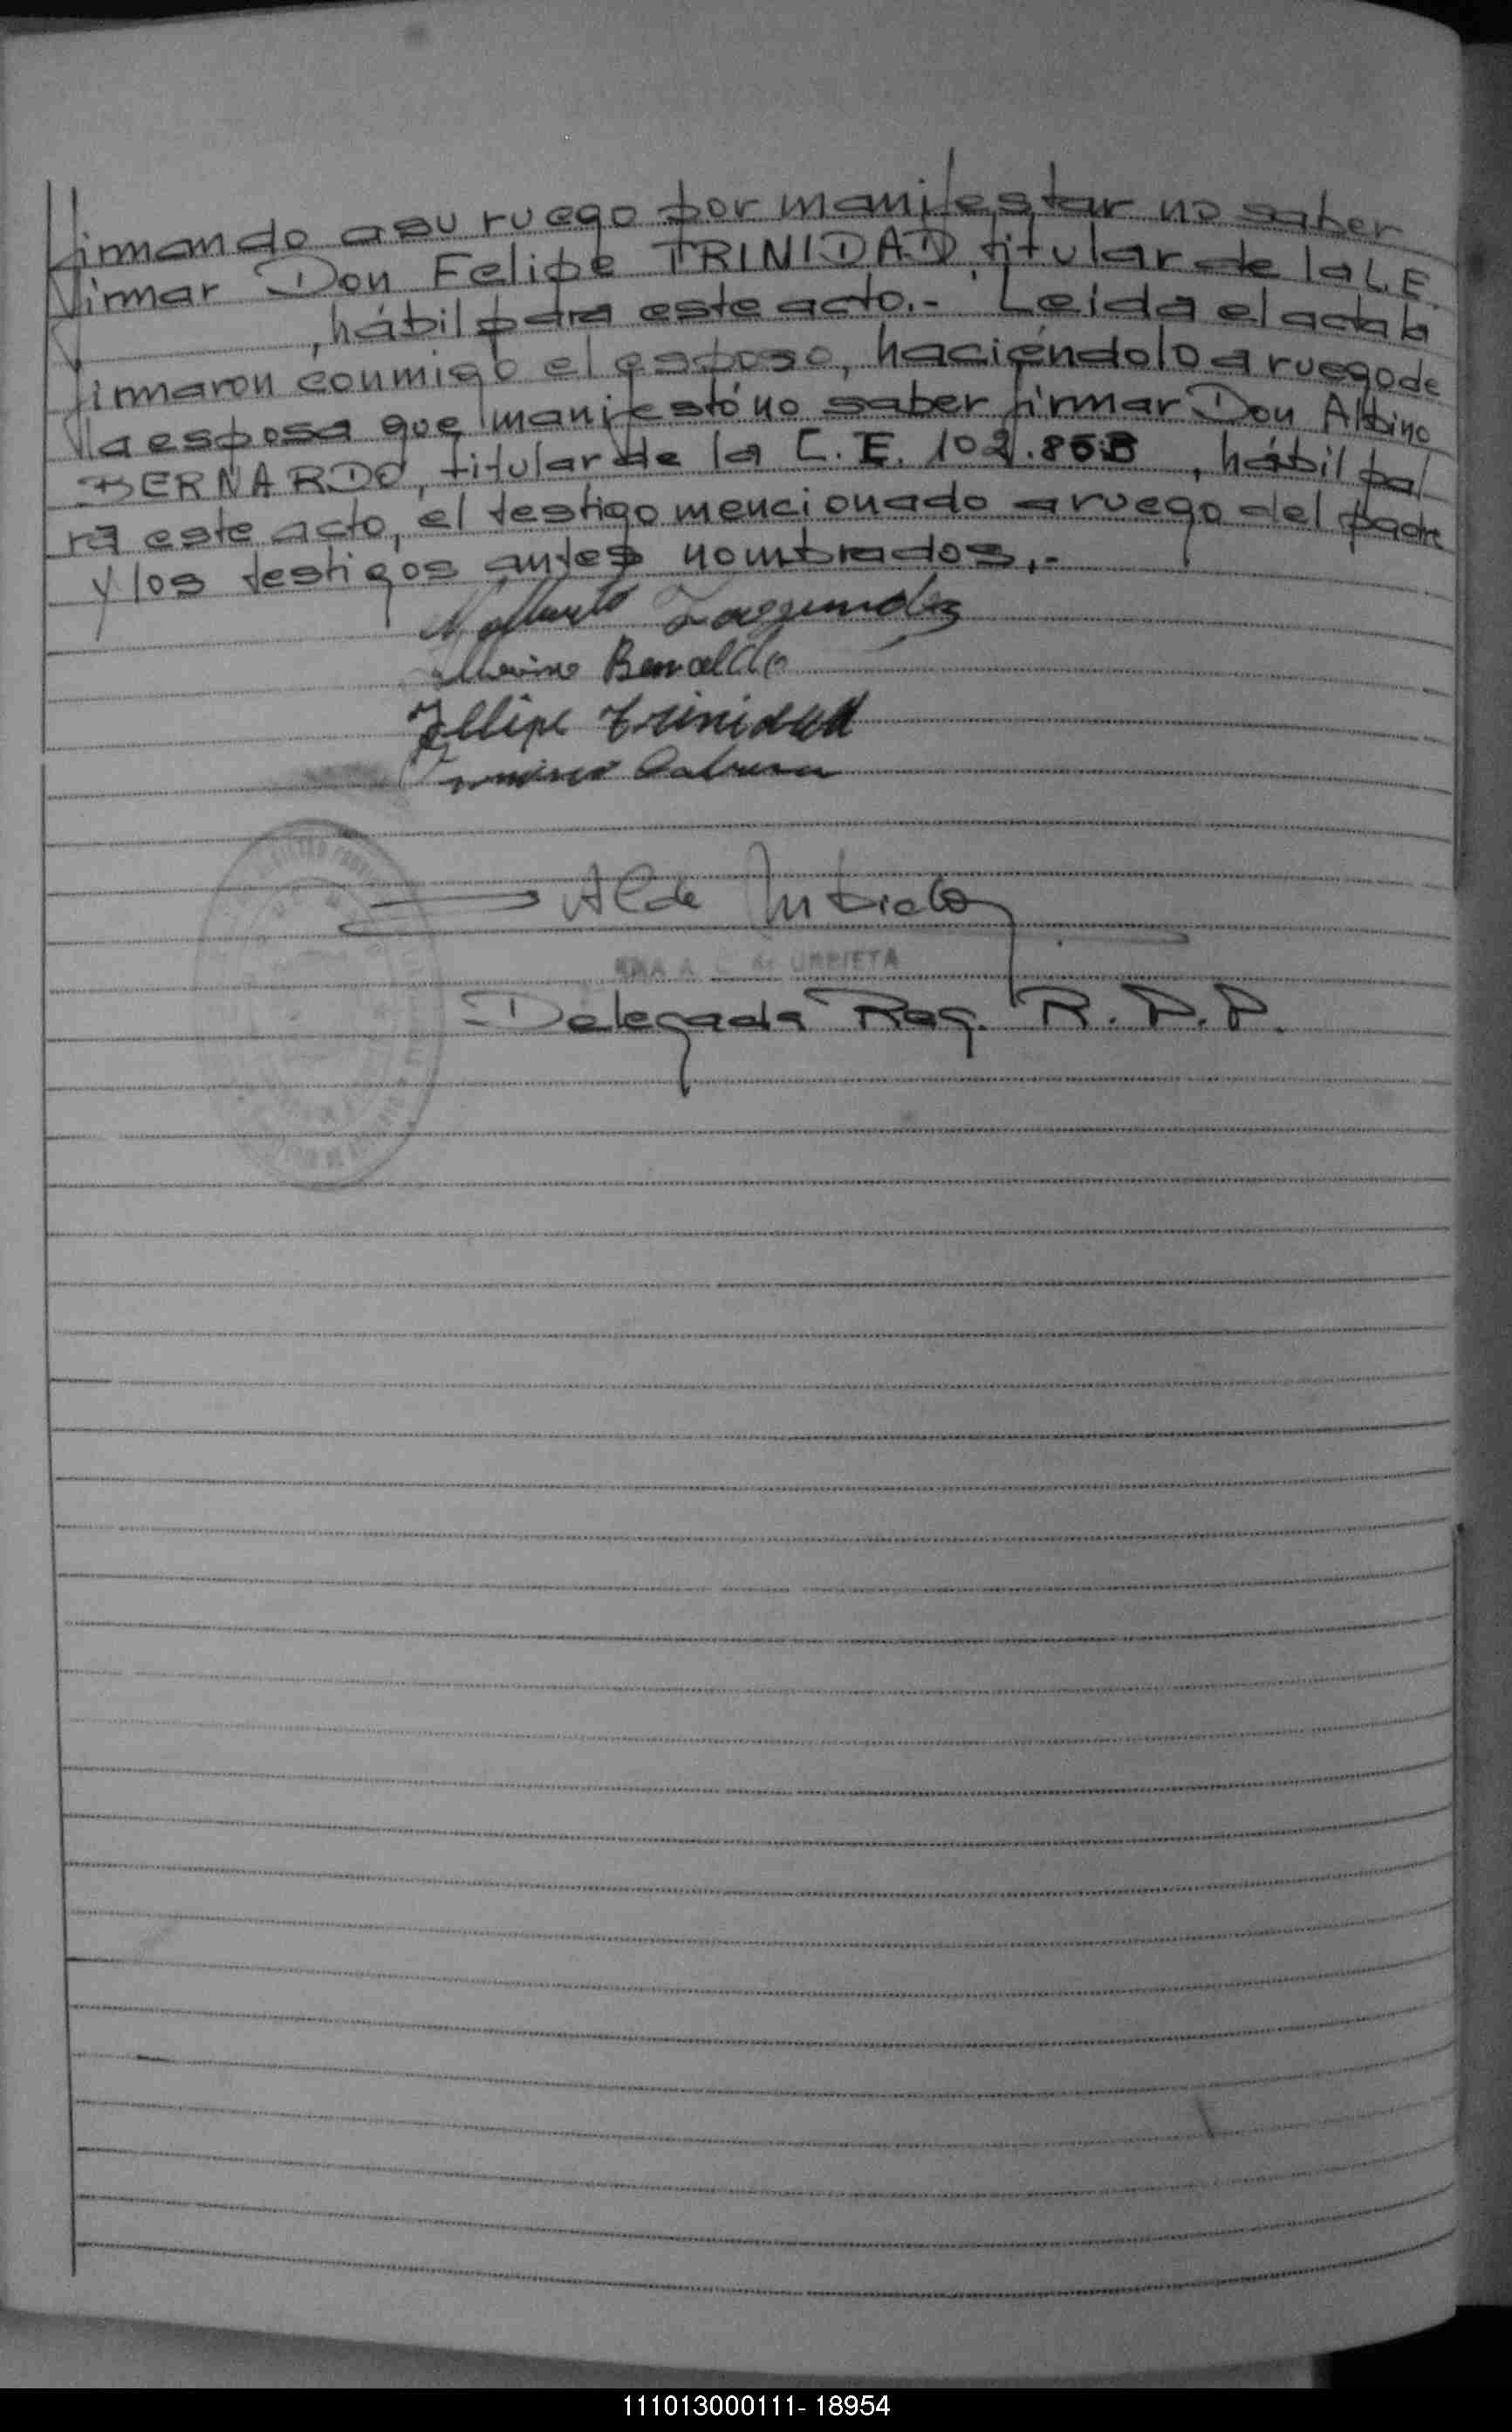 firmando a su ruego por manifestar no saber
firmar Don Felipe TRINIDAD, titular de la L.E.
, hábil para este acto.- Leída el acta la
firmaron conmigo el esposo, haciéndolo a ruego de
la esposa que manifestó no saber firmar Don Albino
BERNARDO, titular de la C.E. 102.858, hábil pa
ra este acto, el testigo mencionado a ruego del padre
y los testigos antes nombrados,.-
Fellipe trinidad
URBIETA
Delegada Reg. R.P.P.
111013000111- 18954